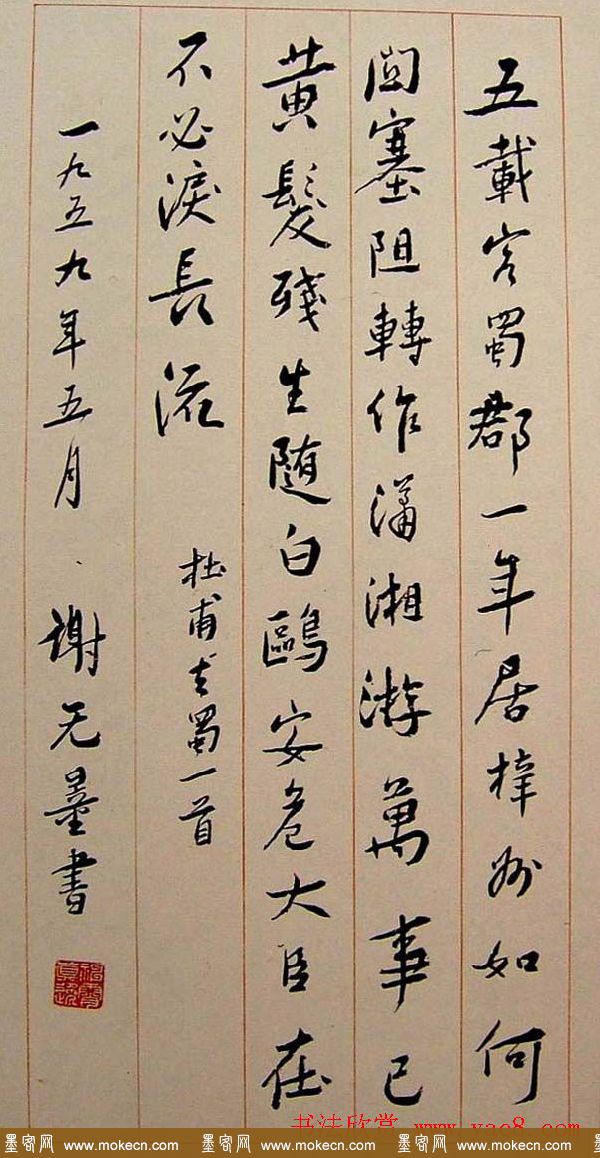 五載客蜀郡一年居梓州如何
關塞阻轉作瀟湘游萬事已
黃髮殘生隨白鷗安危大臣在
不必淚長流
杜甫去蜀一首
一九五九年五月 謝无量書
书法欣赏 www.yac8.com
墨客网 www.mokecn.com 墨客网 www.mokecn.com 墨客网 www.mokecn.com